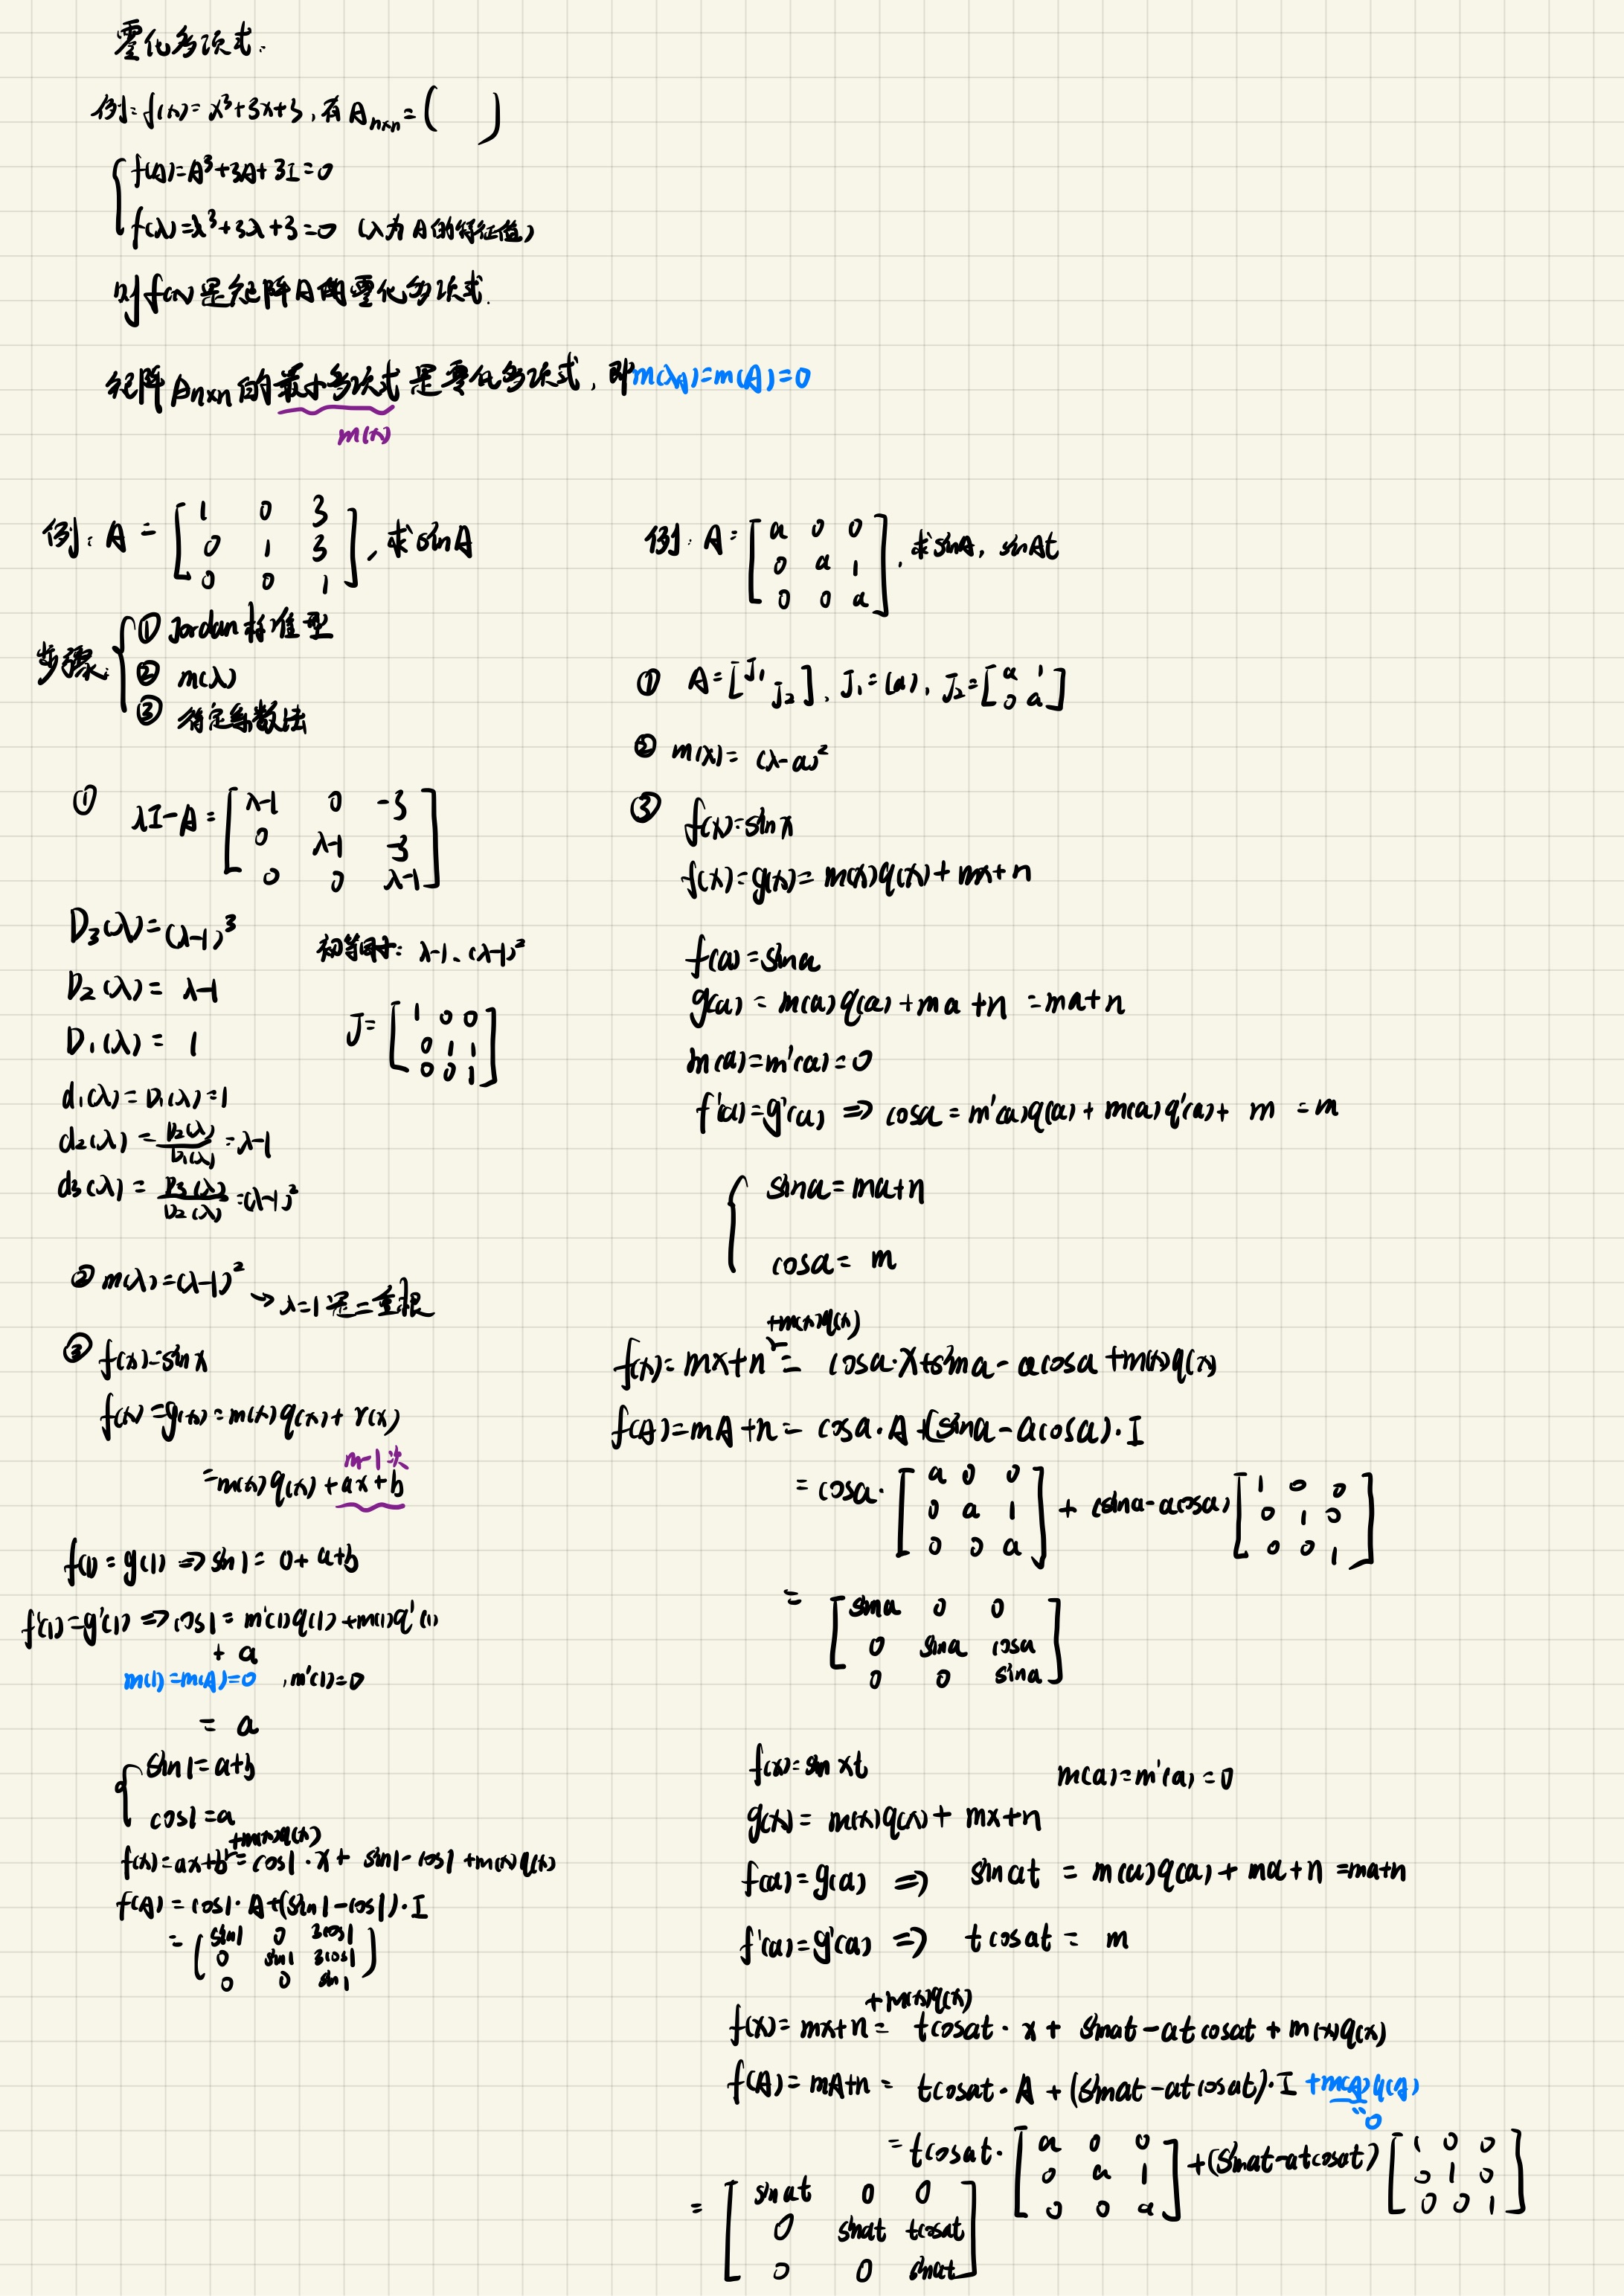 零化多项式.
例: f(x)=x³+3x+3, 有 Aₙₓₙ=(    )
{ f(A)=A³+3A+3I=0
f(λ)=λ³+3λ+3=0 (λ为A的特征值)
则f(x)是矩阵A的零化多项式.
矩阵Aₙₓₙ的最小多项式是零化多项式, 即m(λ_A)=m(A)=0
m(x)
例: A = [1 0 3
0 1 3
0 0 1], 求sinA
步骤: { ① Jordan标准型
② m(λ)
③ 待定系数法
① λI-A= [λ-1 0 -3
0 λ-1 -3
0 0 λ-1]
D₃(λ)=(λ-1)³
D₂(λ)= λ-1
D₁(λ)= 1
d₁(λ)=D₁(λ)=1
d₂(λ)=D₂(λ)/D₁(λ)=λ-1
d₃(λ)=D₃(λ)/D₂(λ)=(λ-1)²
初等因子: λ-1、(λ-1)²
J= [1 0 0
0 1 1
0 0 1]
② m(λ)=(λ-1)² → λ=1是二重根
③ f(x)=sinx
f(x)=g(x)=m(x)q(x)+r(x)
m-1次
=m(x)q(x)+ax+b
f(1)=g(1)⇒sin1=0+a+b
f'(1)=g'(1)⇒cos1=m'(1)q(1)+m(1)q'(1)
+ a
m(1)=m(A)=0 , m'(1)=0
= a
{ sin1=a+b
cos1=a
+m(x)q(x)
f(x)=ax+b=cos1·x+ sin1-cos1+m(x)q(x)
f(A)=cos1·A+(sin1-cos1)·I
= (sin1 0 3cos1
0 sin1 3cos1
0 0 sin1)
例: A= [a 0 0
0 a 1
0 0 a], 求sinA, sinAt
① A=[J₁ J₂], J₁=(a), J₂=[a 1
0 a]
② m(λ)= (λ-a)²
③ f(x)=sinx
f(x)=g(x)=m(x)q(x)+mx+n
f(a)=sina
g(a)=m(a)q(a)+ma+n=ma+n
m(a)=m'(a)=0
f'(a)=g'(a)⇒cosa=m'(a)q(a)+m(a)q'(a)+ m =m
{ sina=ma+n
cosa= m
+m(x)q(x)
f(x)=mx+n= cosa·x+sina-acosa+m(x)q(x)
f(A)=mA+n= cosa·A+(sina-acosa)·I
=cosa· [a 0 0
0 a 1
0 0 a] + (sina-acosa) [1 0 0
0 1 0
0 0 1]
= [sina 0 0
0 sina cosa
0 0 sina]
f(x)=sinxt    m(a)=m'(a)=0
g(x)=m(x)q(x)+ mx+n
f(a)=g(a)⇒ sinat =m(a)q(a)+ma+n=ma+n
f'(a)=g'(a)⇒ tcosat= m
+m(x)q(x)
f(x)=mx+n= tcosat·x+ sinat-atcosat+m(x)q(x)
f(A)=mA+n= tcosat·A+(sinat-atcosat)·I+m(A)q(A)
0
=tcosat· [a 0 0
0 a 1
0 0 a] +(sinat-atcosat) [1 0 0
0 1 0
0 0 1]
= [sinat 0 0
0 sinat tcosat
0 0 sinat]